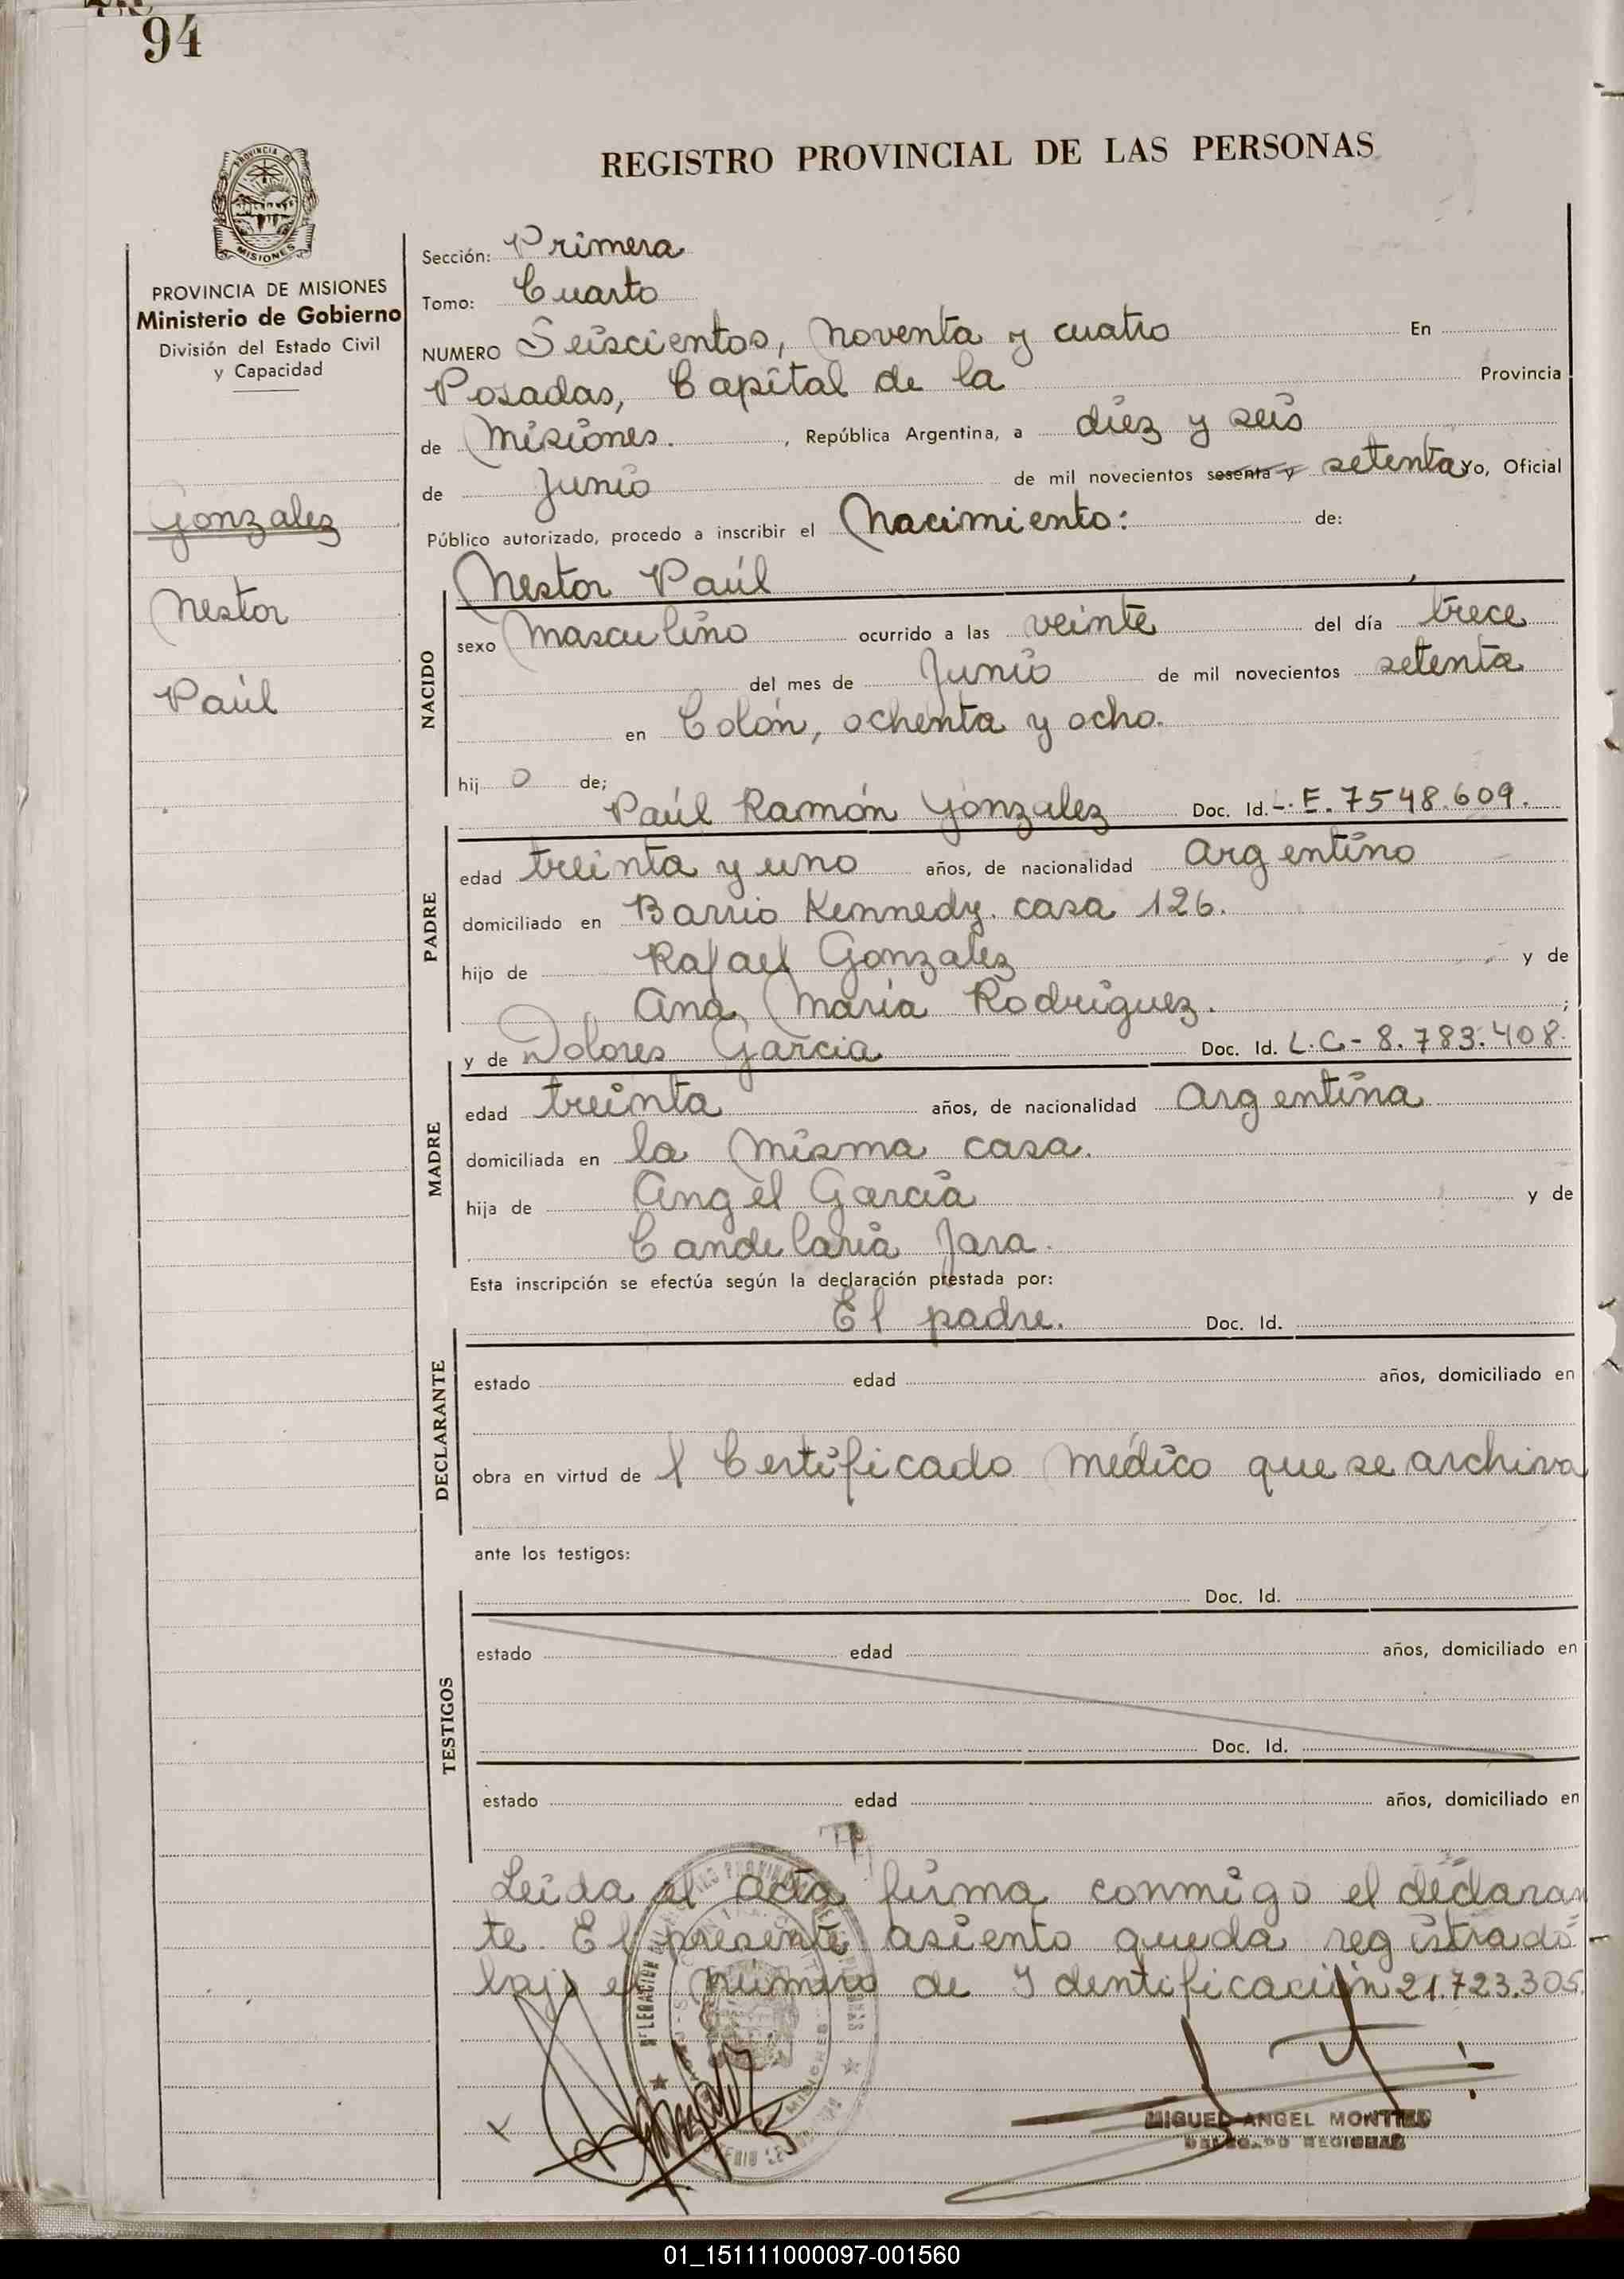 94
REGISTRO PROVINCIAL DE LAS PERSONAS
PROVINCIA DE MISIONES
Ministerio de Gobierno
División del Estado Civil
y Capacidad
Gonzalez
Nestor
Paúl
Sección: Primera
Tomo: Cuarto
NUMERO Seiscientos, Noventa y cuatro En
Posadas, Capital de la Provincia
de Misiones. , República Argentina, a diez y seis
de Junio de mil novecientos sesenta y setenta Yo, Oficial
Público autorizado, procedo a inscribir el Nacimiento: de:
Nestor Paúl ,
NACIDO
sexo Masculino ocurrido a las veinte del día trece
del mes de Junio de mil novecientos setenta
en Colón, ochenta y ocho.
hij o de;
Paúl Ramón Gonzalez Doc. Id. -. E. 7548.609.
PADRE
edad treinta y uno años, de nacionalidad Argentino
domiciliado en Barrio Kennedy. casa 126.
hijo de Rafael Gonzalez y de
Ana Maria Rodriguez. ;
y de Dolores Garcia Doc. Id. L.C- 8.783.408.
MADRE
edad treinta años, de nacionalidad Argentina
domiciliada en la misma casa.
hija de Angel Garcia y de
Candelaria Jara.
Esta inscripción se efectúa según la declaración prestada por:
El padre. Doc. Id.
DECLARANTE
estado edad años, domiciliado en
obra en virtud de l Certificado Médico que se archiva
ante los testigos:
Doc. Id.
TESTIGOS
estado edad años, domiciliado en
Doc. Id.
estado edad años, domiciliado en
Leida el acta firma conmigo el declaran
te. El presente asiento queda registrado
bajo el Número de Identificación 21.723.305.
MIGUEL ANGEL MONTIEL
DELEGADO REGIONAL
01_151111000097-001560